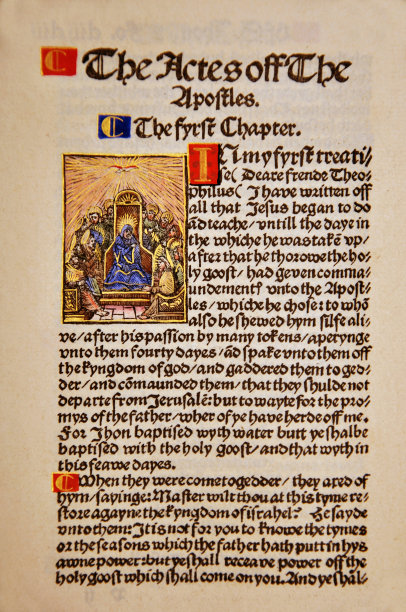 C The Actes off The
Apostles.
C The fyrst Chapter.
IN my fyrst treati/
se (Deare frende Theo-
philus( I have written off
all that Jesus began to do
and teache/ vntill the daye in
the whiche he was take vp/
after that he thorowe the ho/
ly goost/ had geven comma/
undementƷ vnto the Apost/
les/ whiche he chose: to whō
also he shewed hym silfe ali/
ve/ after his passion by many tokens/ aperynge
vnto them fourty dayes/ ād spake vnto them off
the kyngdom of god/ and gaddered them to ged-
der/ and cōmaunded them/ that they shulde not
departe from Jerusalē: but to wayte for the pro-
mys of the father/ wher of ye have herde off me.
For Jhon baptised wyth water butt ye shalbe
baptised with the holy goost/ and that wyth in
this feawe dayes.
C When they were come togedder/ they axed of
hym/ sayinge: Master wilt thou at this tyme re-
store agayne the kyngdom of israhel? He sayde
vnto them: It is not for you to knowe the tymes
or the seasons which the father hath putt in hys
awne power: but ye shall receave power off the
holy goost which shall come on you. And ye shal-